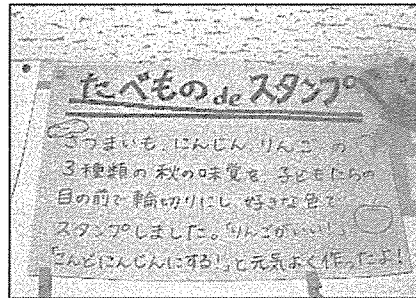 たべもの de スタンプ
さつまいも、にんじん りんご の
3種類の秋の味覚を 子どもたちの
目の前で輪切りにし 好きな色で
スタンプしました。「りんごがいい!」
「こんどにんじんにする!」と元気よく作ったよ!